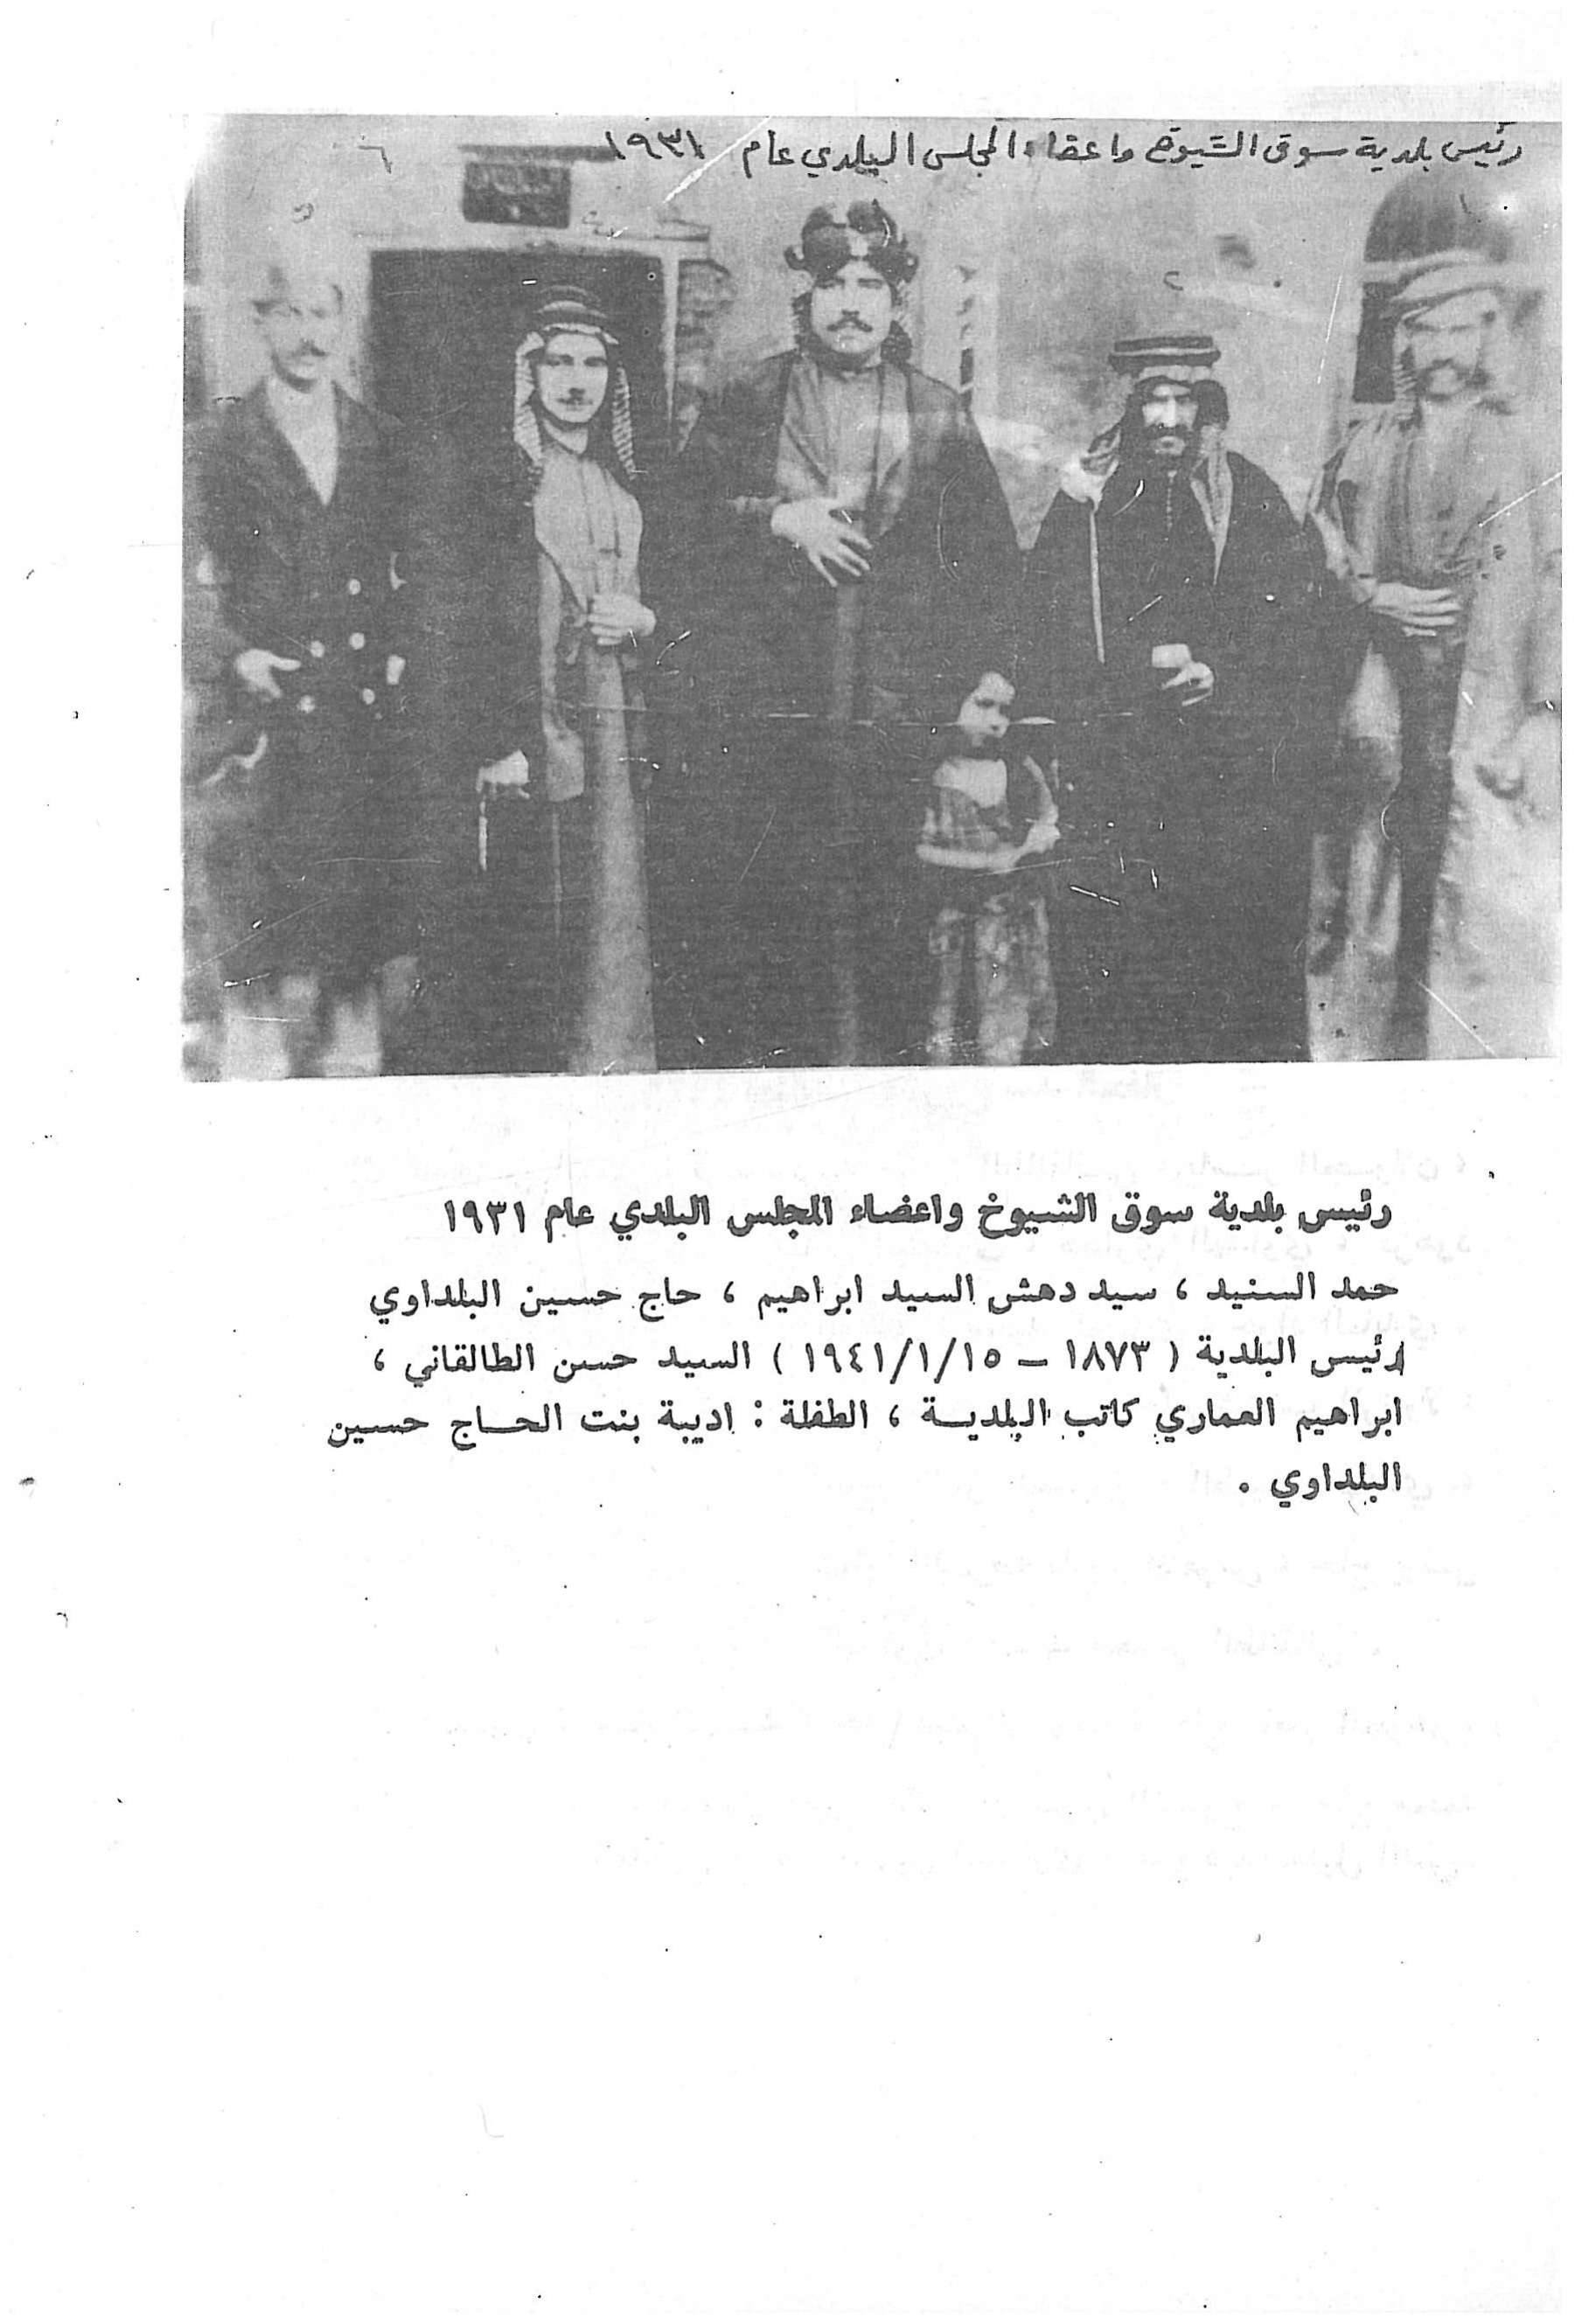 رئيس بلدية سوق الشيوخ واعضاء المجلس البلدي عام ١٩٣١
١
٢
٥
٦
رئيس بلدية سوق الشيوخ واعضاء المجلس البلدي عام ١٩٣١
حمد السنيد ، سيد دهش السيد ابراهيم ، حاج حسين البلداوي
رئيس البلدية ( ١٨٧٣ - ١٩٤١/١/١٥ ) السيد حسن الطالقاني ،
ابراهيم العماري كاتب البلدية ، الطفلة : اديبة بنت الحاج حسين
البلداوي .